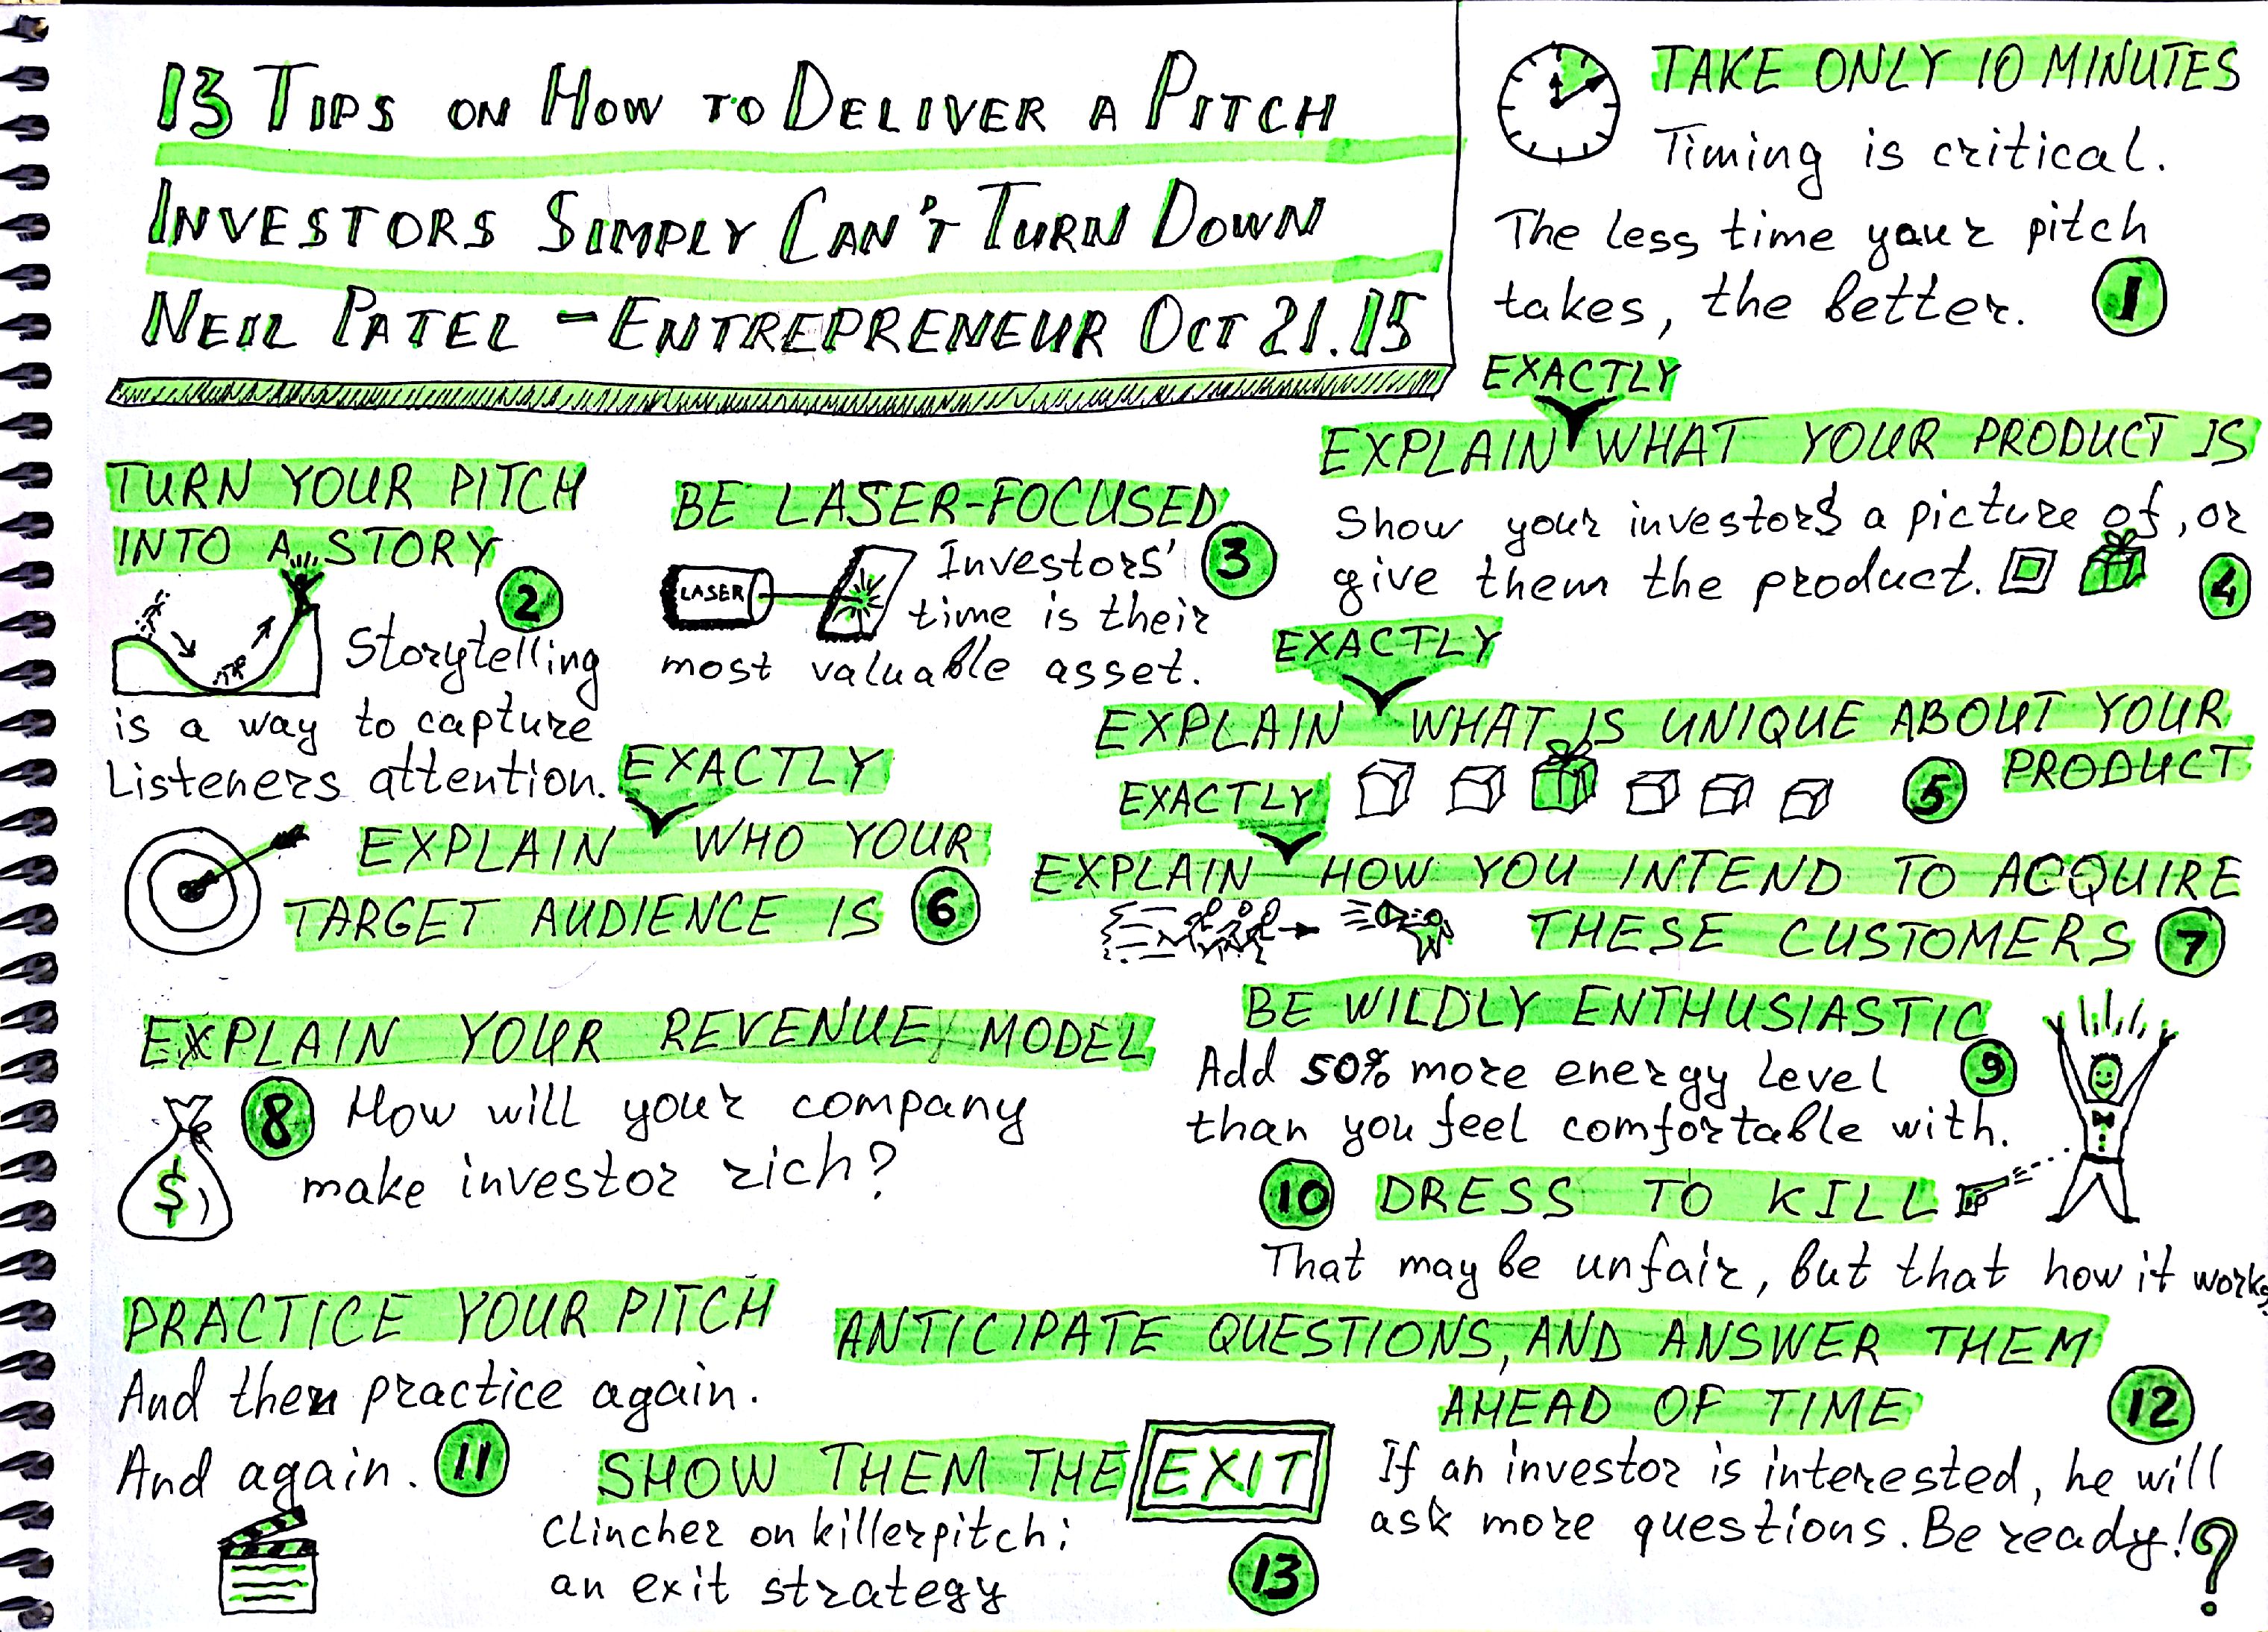 13 TIPS ON HOW TO DELIVER A PITCH
INVESTORS SIMPLY CAN'T TURN DOWN
NEIL PATEL - ENTREPRENEUR OCT 21.15
TAKE ONLY 10 MINUTES
Timing is critical.
The less time your pitch
takes, the better.
1
TURN YOUR PITCH
INTO A STORY
2
Storytelling
is a way to capture
Listeners attention.
BE LASER-FOCUSED
3
LASER
Investors'
time is their
most valuable asset.
EXACTLY
EXPLAIN WHAT YOUR PRODUCT IS
Show your investors a picture of, or
give them the product.
4
EXACTLY
EXPLAIN WHAT IS UNIQUE ABOUT YOUR
PRODUCT
5
EXACTLY
EXPLAIN WHO YOUR
TARGET AUDIENCE IS
6
EXACTLY
EXPLAIN HOW YOU INTEND TO ACQUIRE
THESE CUSTOMERS
7
EXPLAIN YOUR REVENUE MODEL
8
How will your company
make investor rich?
$
BE WILDLY ENTHUSIASTIC
9
Add 50% more energy level
than you feel comfortable with.
10
DRESS TO KILL
That may be unfair, but that how it works
PRACTICE YOUR PITCH
And then practice again.
And again.
11
ANTICIPATE QUESTIONS, AND ANSWER THEM
AHEAD OF TIME
12
If an investor is interested, he will
ask more questions. Be ready!?
SHOW THEM THE EXIT
Clincher on killerpitch:
an exit strategy
13